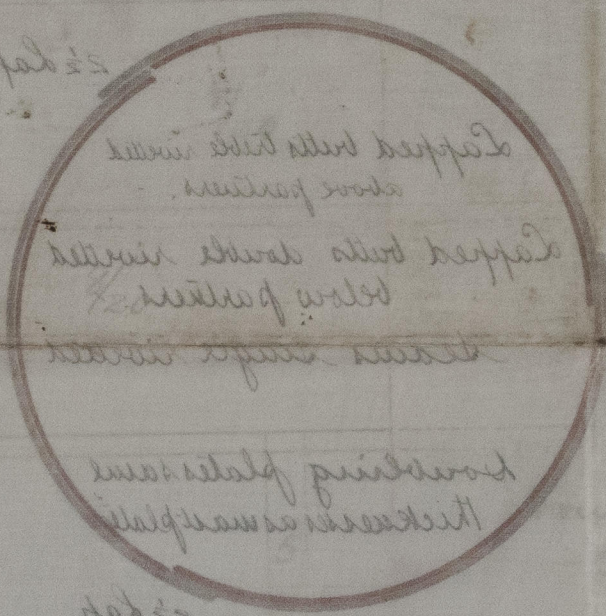 2½ Lap
Lapped butts treble rivetted
above partners.
Lapped butts double rivetted
below partners
Seams single rivetted
Doubling plates same
thickness as mast plate
2½ Lap